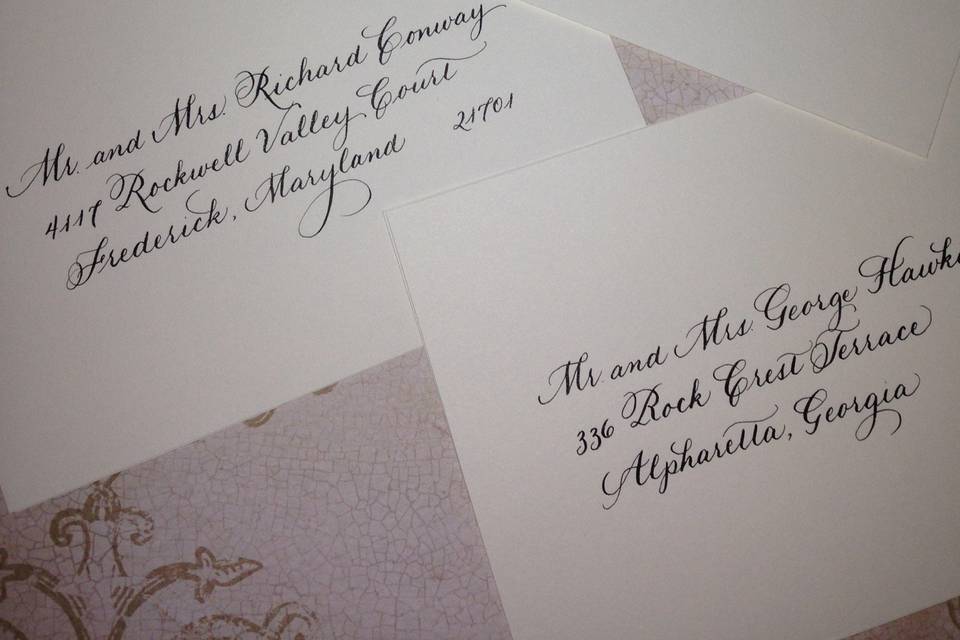 Mr. and Mrs. Richard Conway
4117 Rockwell Valley Court
Frederick, Maryland 21701
Mr. and Mrs. George
336 Rock Crest Terrace
Alpharetta, Georgia